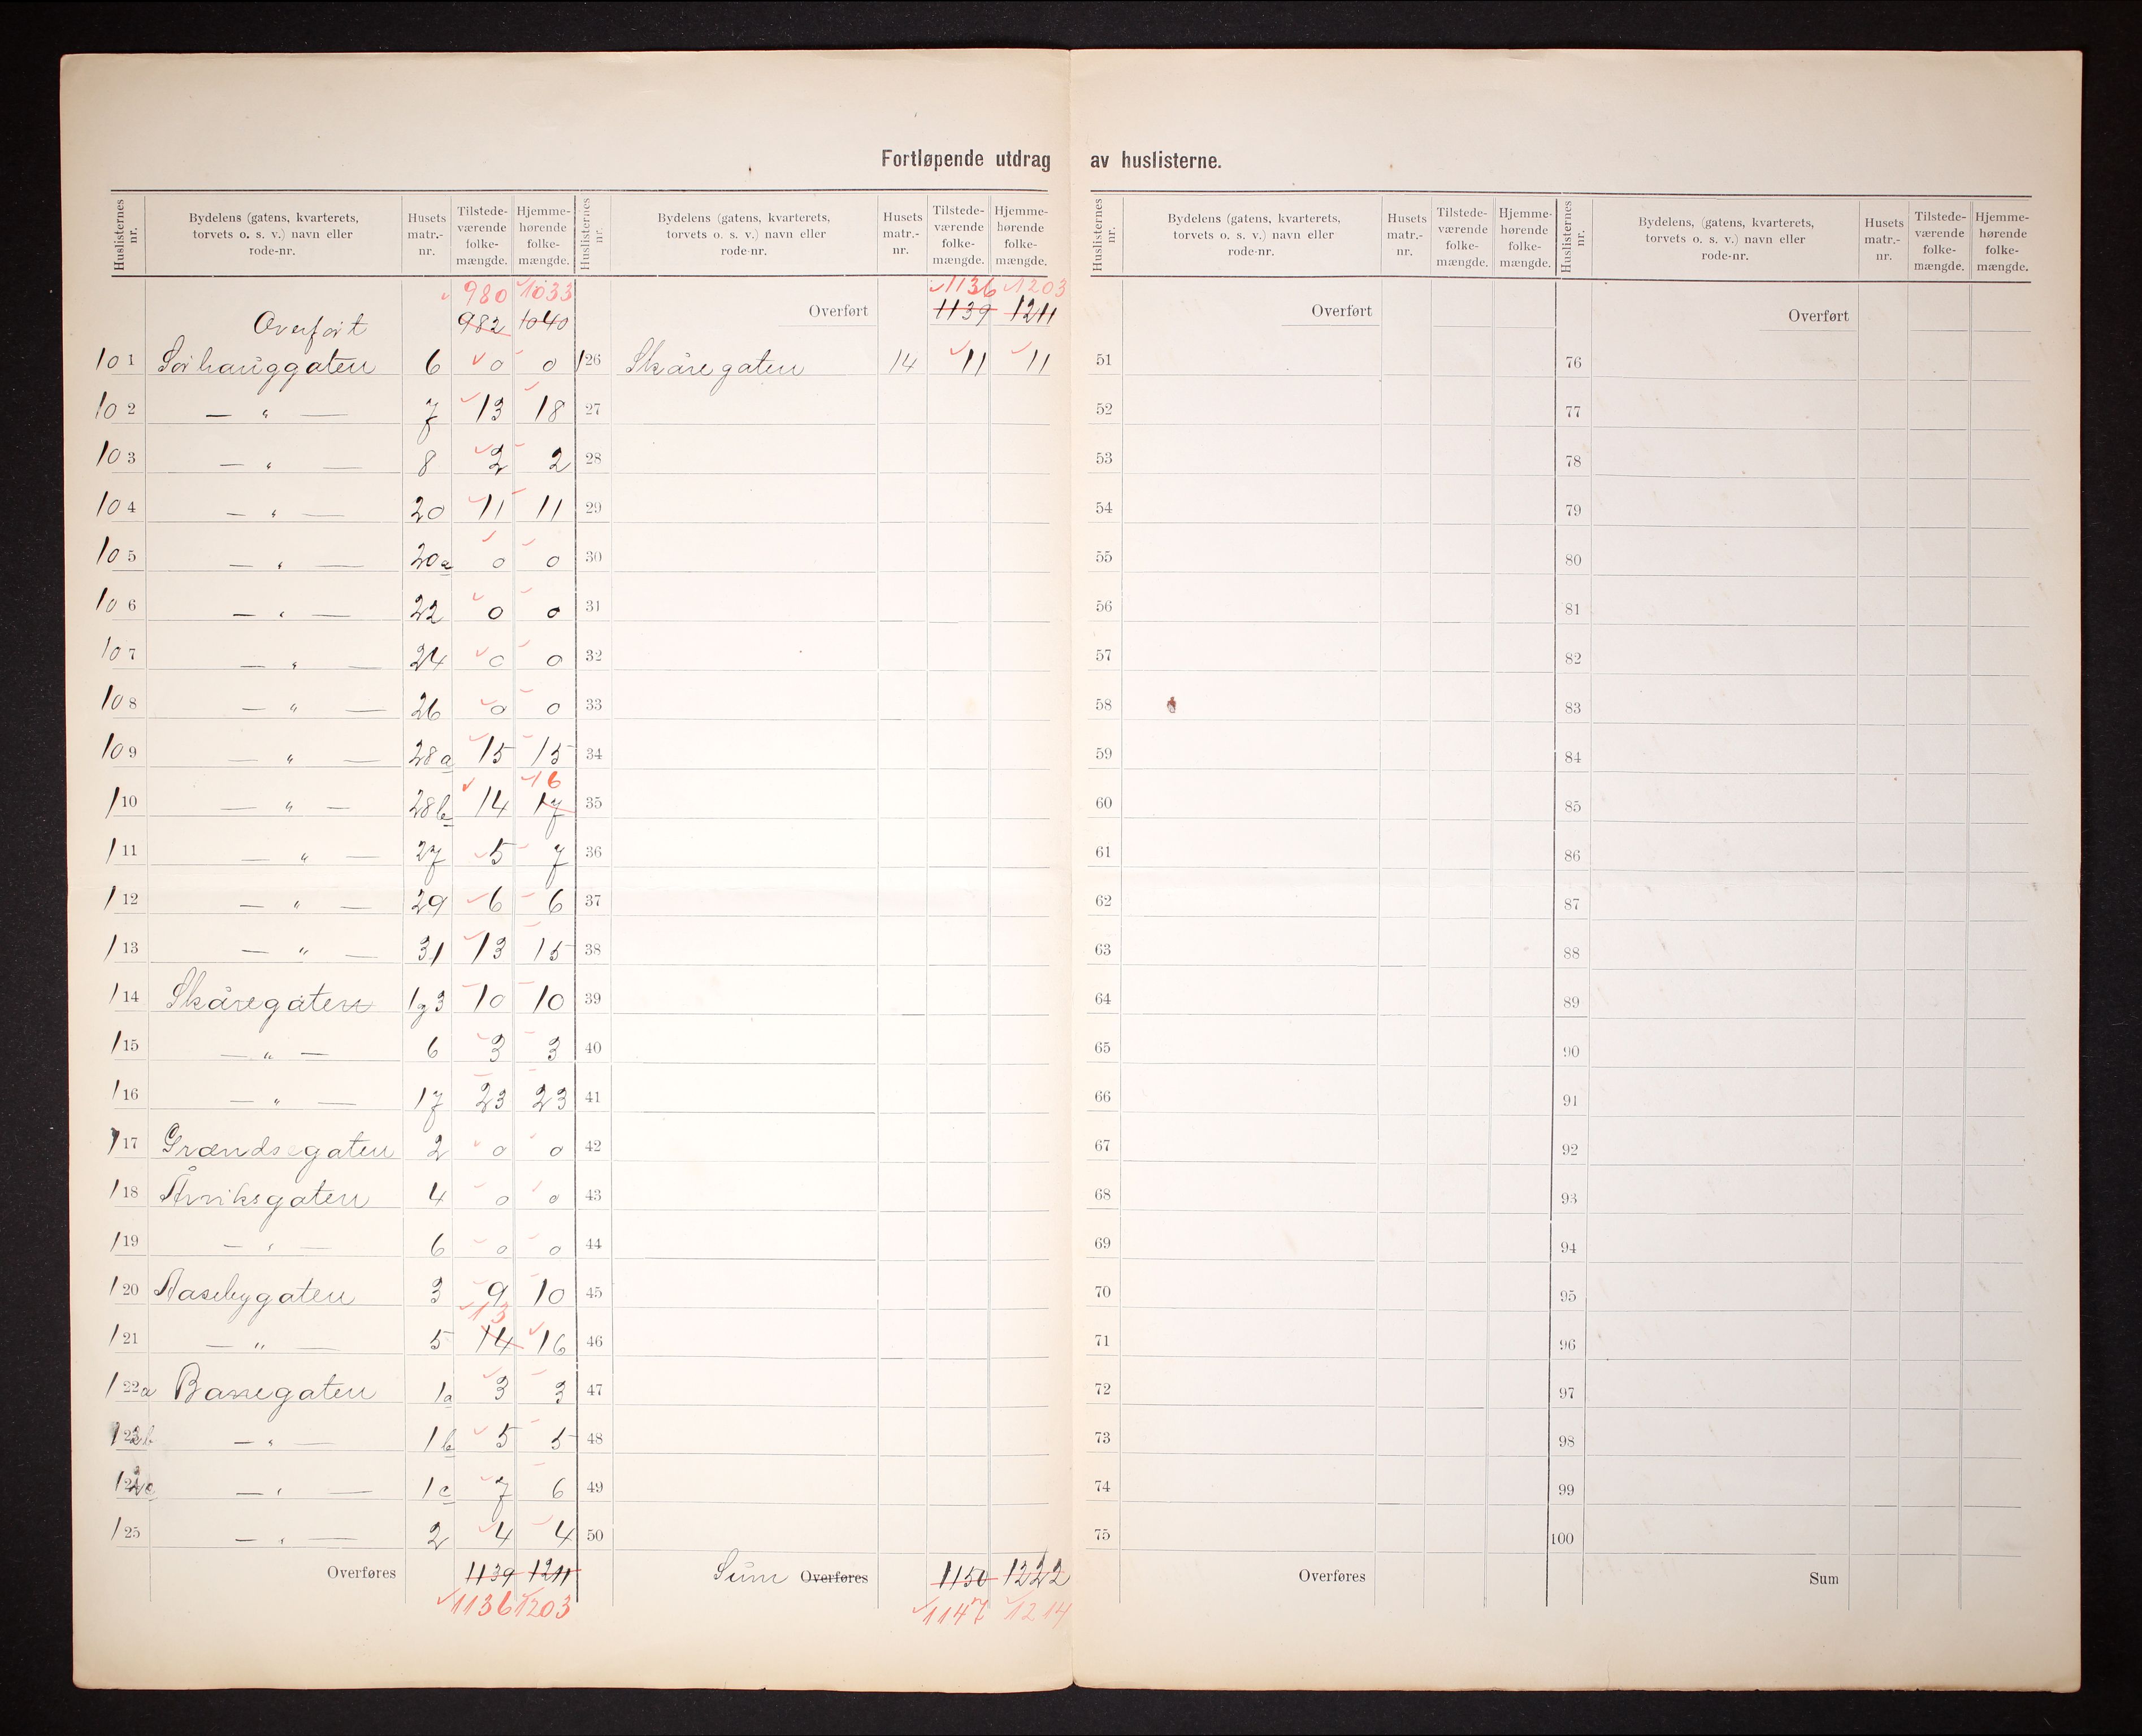 Fortløpende utdrag av huslisterne.
Huslisternes nr. Bydelens (gatens, kvarterets, torvets o. s. v.) navn eller rode-nr. Husets matr.-nr. Tilstede-værende folke-mængde. Hjemme-hørende folke-mængde.
980 1033
Overført 982 1040
101 Sørhauggaten 6 0 0
102 — " — 7 13 18
103 — " — 8 2 2
104 — " — 20 11 11
105 — " — 20a 0 0
106 — " — 22 0 0
107 — " — 24 0 0
108 — " — 26 0 0
109 — " — 28a 15 15
16
110 — " — 28b 14 17
111 — " — 27 5 7
112 — " — 29 6 6
113 — " — 31 13 15
114 Skåregaten 1g3 10 10
115 — " — 6 3 3
116 — " — 17 23 23
117 Grændsegaten 2 0 0
118 Årviksgaten 4 0 0
119 — " — 6 0 0
120 Aasebygaten 3 9 10
13
121 — " — 5 14 16
122a Barregaten 1a 3 3
122b — " — 1b 5 5
122c — " — 1c 7 6
125 — " — 2 4 4
Overføres 1139 1211
1136 1203
Huslisternes nr. Bydelens (gatens, kvarterets, torvets o. s. v.) navn eller rode-nr. Husets matr.-nr. Tilstede-værende folke-mængde. Hjemme-hørende folke-mængde.
1136 1203
Overført 1139 1211
126 Skåregaten 14 11 11
27
28
29
30
31
32
33
34
35
36
37
38
39
40
41
42
43
44
45
46
47
48
49
50
Sum Overføres 1150 1222
1147 1214
Huslisternes nr. Bydelens (gatens, kvarterets, torvets o. s. v.) navn eller rode-nr. Husets matr.-nr. Tilstede-værende folke-mængde. Hjemme-hørende folke-mængde.
Overført
51
52
53
54
55
56
57
58
59
60
61
62
63
64
65
66
67
68
69
70
71
72
73
74
75
Overføres
Huslisternes nr. Bydelens, (gatens, kvarterets, torvets o. s. v.) navn eller rode-nr. Husets matr.-nr. Tilstede-værende folke-mængde. Hjemme-hørende folke-mængde.
Overført
76
77
78
79
80
81
82
83
84
85
86
87
88
89
90
91
92
93
94
95
96
97
98
99
100
Sum